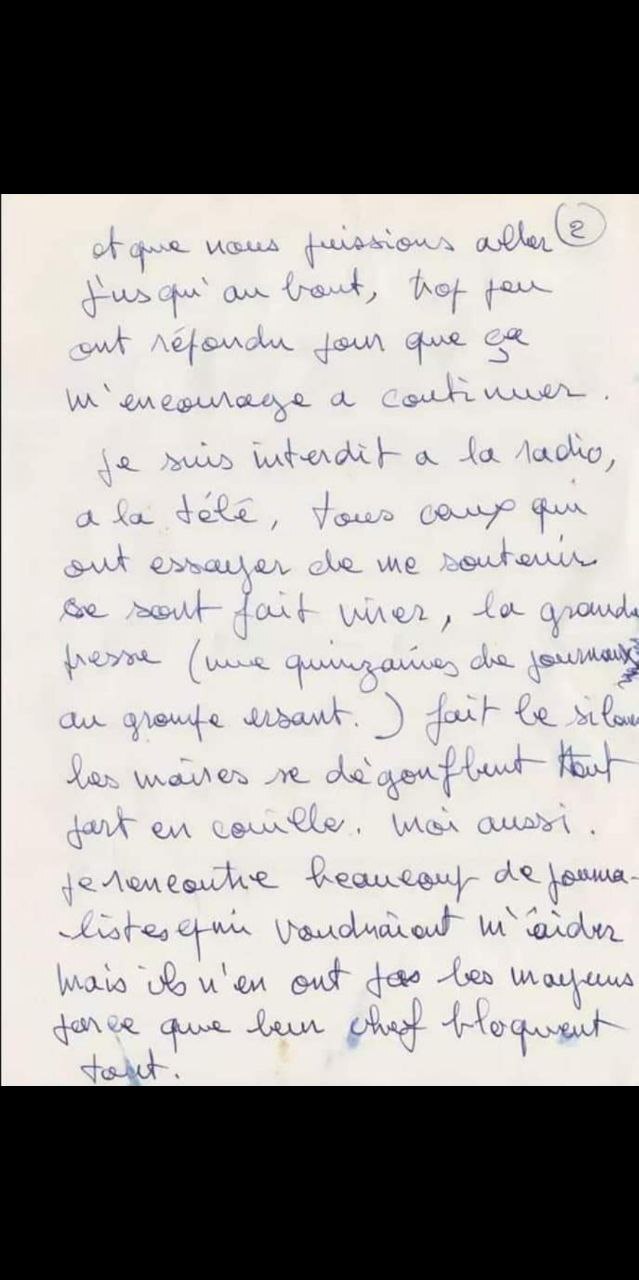 2
et que nous puissions aller
jusqu'au bout, trop peu
ont répondu pour que ça
m'encourage a continuer.
je suis interdit a la radio,
a la télé, tous ceux qui
ont essayer de me soutenir
se sont fait virer, la grande
presse (une quinzaines de journaux
au groupe ersant.) fait le silen
les maires se dégonflent tout
part en couille. moi aussi.
je rencontre beaucoup de journa-
listes qui voudraient m'aider
mais ils n'en ont pas les moyens
parce que leur chef bloquent
tout.